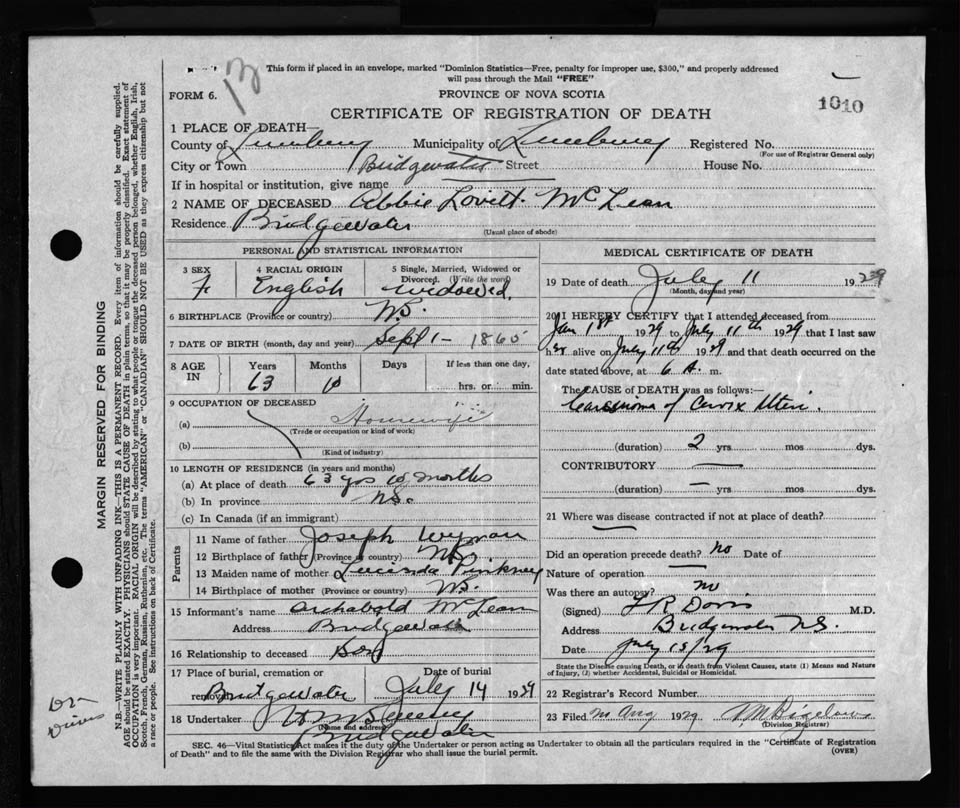 This form if placed in an envelope, marked "Dominion Statistics—Free, penalty for improper use, $300," and properly addressed
will pass through the Mail "FREE"
13
FORM 6.
PROVINCE OF NOVA SCOTIA
1010
CERTIFICATE OF REGISTRATION OF DEATH
1 PLACE OF DEATH—
County of Lunenburg Municipality of Lunenburg Registered No.
(For use of Registrar General only)
City or Town Bridgewater Street House No.
If in hospital or institution, give name
2 NAME OF DECEASED Abbie Lovitt McLean
Residence Bridgewater
(Usual place of abode)
PERSONAL AND STATISTICAL INFORMATION
3 SEX 4 RACIAL ORIGIN 5 Single, Married, Widowed or
Divorced. (Write the word)
F. English widowed.
6 BIRTHPLACE (Province or country) N.S.
7 DATE OF BIRTH (month, day and year) Sept 1 - 1865
8 AGE IN Years Months Days If less than one day,
63 10 hrs. or min.
9 OCCUPATION OF DECEASED
(a) Housewife
(Trade or occupation or kind of work)
(b)
(Kind of industry)
10 LENGTH OF RESIDENCE (in years and months)
(a) At place of death 63 yrs 10 months
(b) In province N.S.
(c) In Canada (if an immigrant)
Parents
11 Name of father Joseph Wyman
12 Birthplace of father (Province or country) N.S.
13 Maiden name of mother Lucinda Pinkney
14 Birthplace of mother ( " " ) N.S.
15 Informant's name Archabold McLean
Address Bridgewater
16 Relationship to deceased Son
17 Place of burial, cremation or removal Date of burial
Bridgewater July 14 1929
18 Undertaker
(Name and address)
Bridgewater
MEDICAL CERTIFICATE OF DEATH
19 Date of death July 11 1929
(Month, day and year)
20 I HEREBY CERTIFY that I attended deceased from
Jan 1st 1929 to July 11th 1929 that I last saw
her alive on July 11th 1929 and that death occurred on the
date stated above, at 6 A. m.
The CAUSE of DEATH was as follows:—
Carcinoma of Cervix Uteri.
(duration) 2 yrs mos dys.
CONTRIBUTORY —
(duration) — yrs. mos. dys.
21 Where was disease contracted if not at place of death?
Did an operation precede death? No Date of
Nature of operation
Was there an autopsy? no
(Signed) F R Davis M.D.
Address Bridgewater N.S.
Date July 15/29
State the Disease causing Death, or in death from Violent Causes, state (1) Means and Nature
of Injury, (2) whether Accidental, Suicidal or Homicidal.
22 Registrar's Record Number
23 Filed Aug 1929 Bigelow
(Division Registrar)
SEC. 46—Vital Statistics Act makes it the duty of the Undertaker or person acting as Undertaker to obtain all the particulars required in the "Certificate of Registration
of Death" and to file the same with the Division Registrar who shall issue the burial permit. (OVER)
MARGIN RESERVED FOR BINDING
N.B.—WRITE PLAINLY WITH UNFADING INK—THIS IS A PERMANENT RECORD. Every item of information should be carefully supplied.
AGE should be stated EXACTLY. PHYSICIANS should STATE CAUSE OF DEATH in plain terms, so that it may be properly classified. Exact statement of
OCCUPATION is very important. RACIAL ORIGIN will be described by stating to what people or tongue the deceased person belonged, whether English, Irish,
Scotch, French, German, Russian, Ruthenian, etc. The terms "AMERICAN" or "CANADIAN" SHOULD NOT BE USED as they express citizenship but not
a race or people. See instructions on back of Certificate.